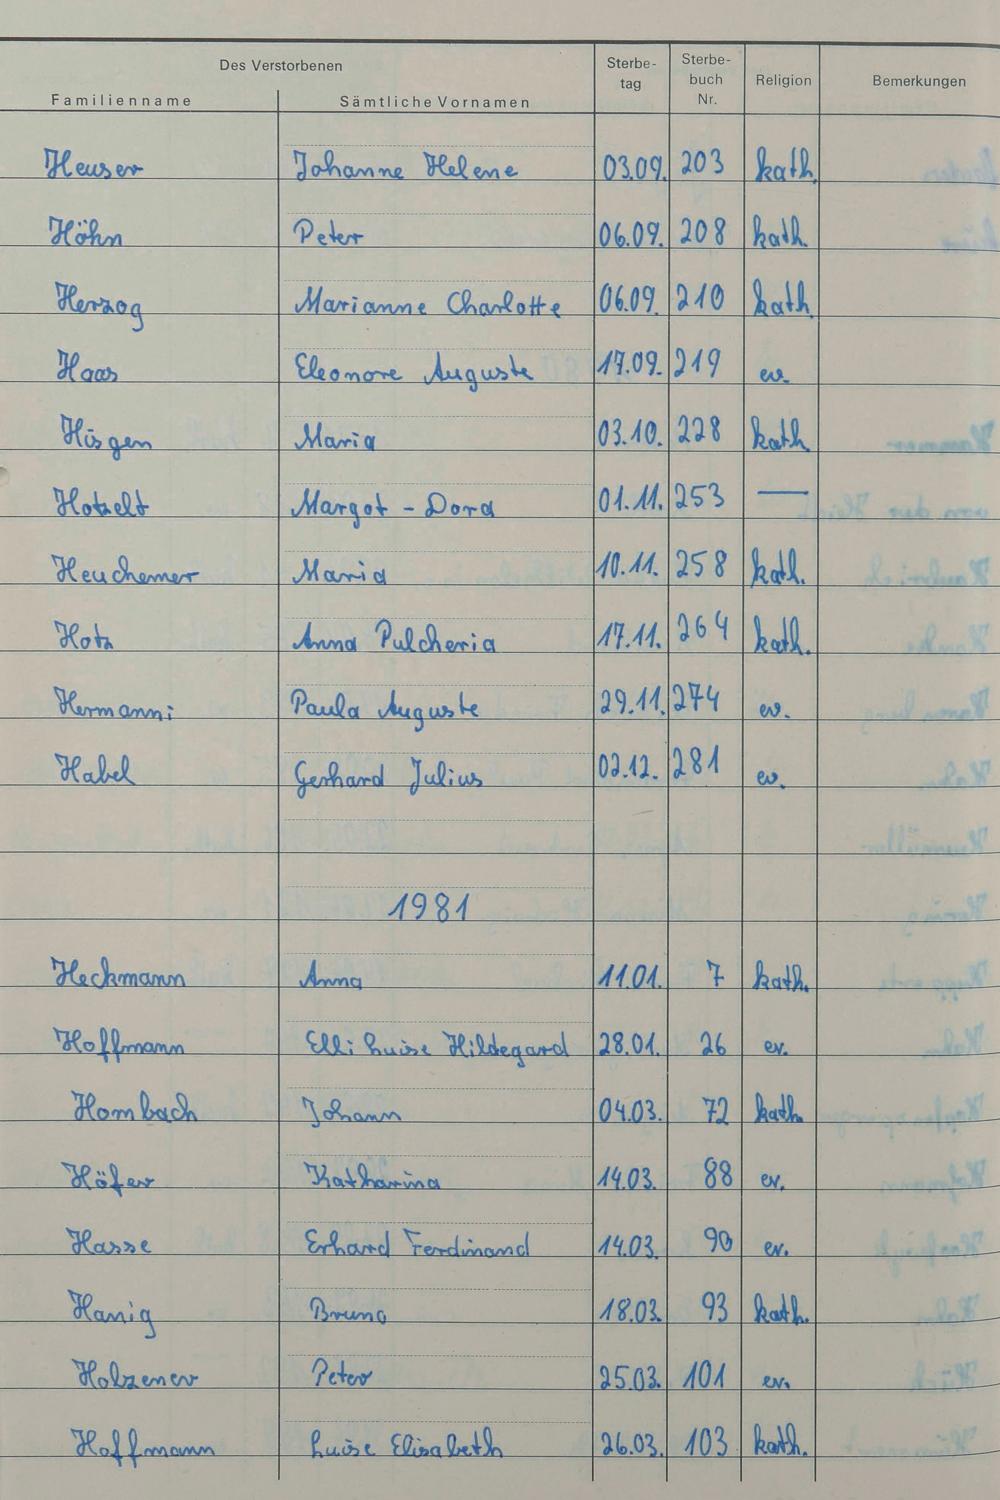 Des Verstorbenen
Familienname Sämtliche Vornamen Sterbe-tag Sterbe-buch Nr. Religion Bemerkungen
Heuser Johanne Helene 03.09. 203 kath.
Höhn Peter 06.09. 208 kath.
Herzog Marianne Charlotte 06.09. 210 kath.
Haas Eleonore Auguste 17.09. 219 ev.
Hisgen Maria 03.10. 228 kath.
Hotzelt Margot - Dora 01.11. 253 —
Heuchemer Maria 10.11. 258 kath.
Hotz Anna Pulcheria 17.11. 264 kath.
Hermanni Paula Auguste 29.11. 274 ev.
Habel Gerhard Julius 02.12. 281 ev.
1981
Heckmann Anna 11.01. 7 kath.
Hoffmann Elli Luise Hildegard 28.01. 26 ev.
Hombach Johann 04.03. 72 kath.
Höfer Katharina 14.03. 88 ev.
Hasse Erhard Ferdinand 14.03. 90 ev.
Hanig Bruno 18.03. 93 kath.
Holzener Peter 25.03. 101 ev.
Hoffmann Luise Elisabeth 26.03. 103 kath.